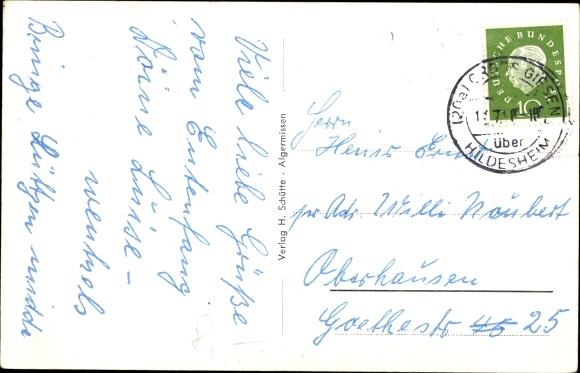 Viele liebe Grüße!
vom Entenfang
Döine Luise –
wentels
Bringe Lützen
Verlag H. Schütte · Algermissen
DEUTSCHE BUNDESPOST
10
(20a) GIESEN
über
HILDESHEIM
Herrn
Heinz
pr Adr Willi Neubert
Oberhausen
Goethestr 25